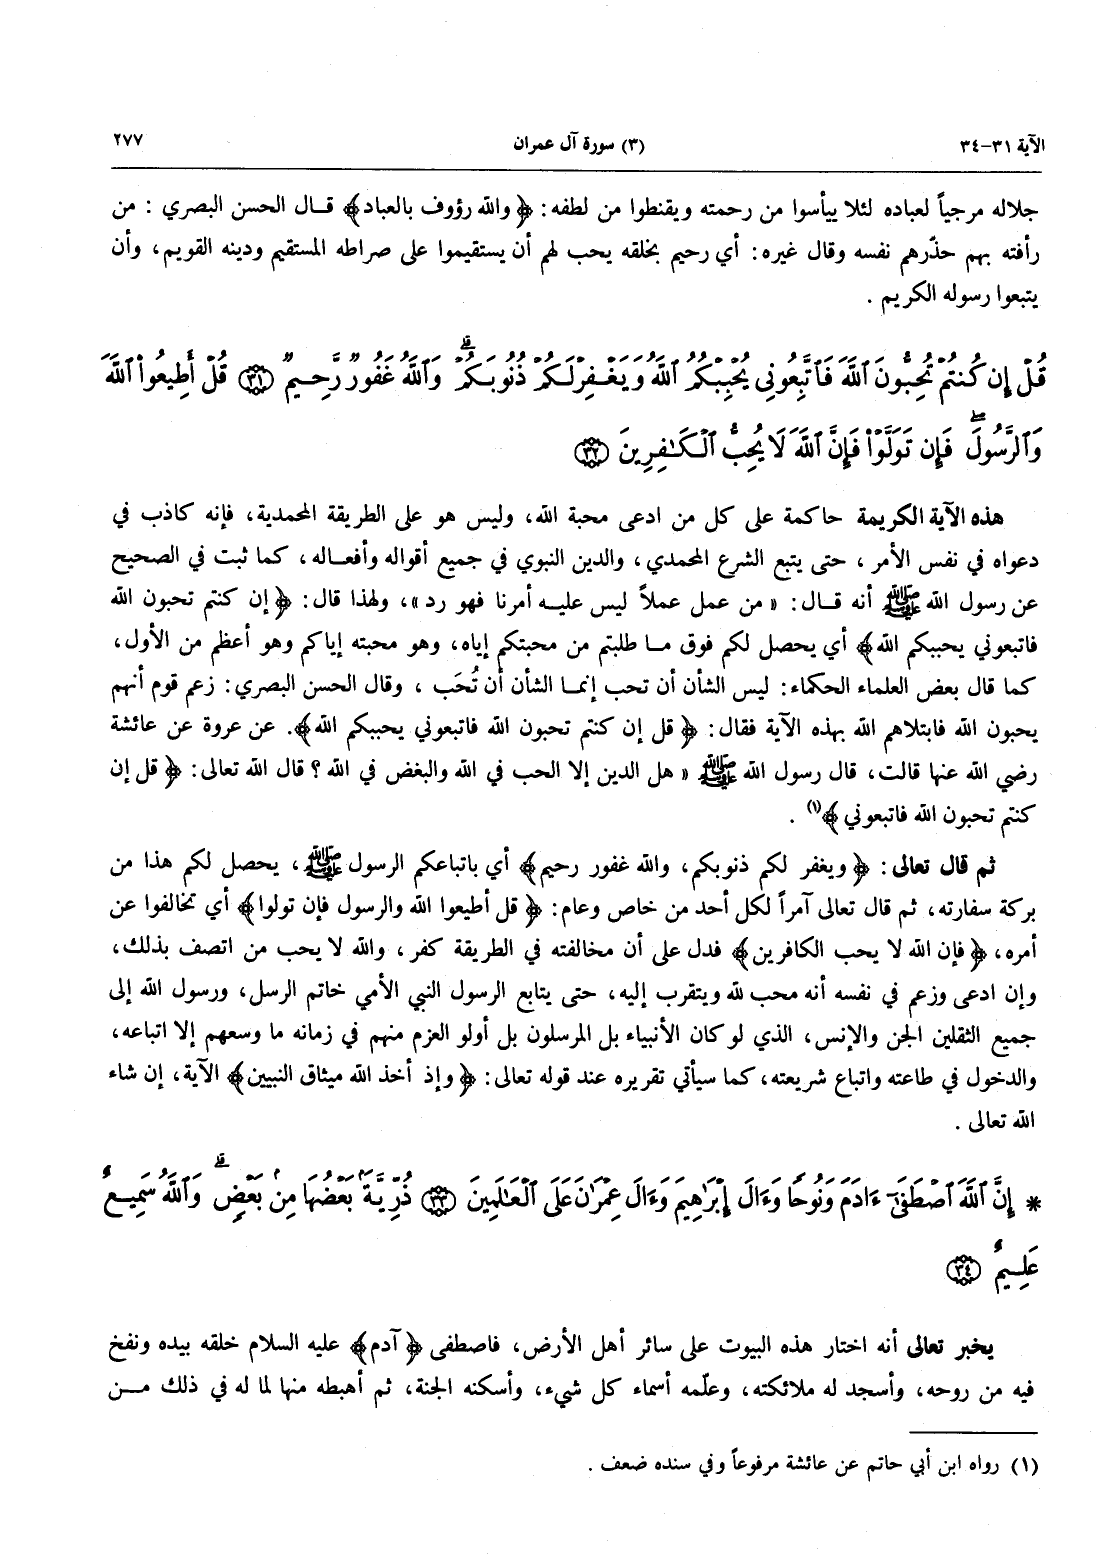 الآية ٣١-٣٤ (٣) سورة آل عمران ٢٧٧
جلاله مرجياً لعباده لئلا ييأسوا من رحمته ويقنطوا من لطفه: ﴿والله رؤوف بالعباد﴾ قال الحسن البصري : من
رأفته بهم حذّرهم نفسه وقال غيره: أي رحيم بخلقه يحب لهم أن يستقيموا على صراطه المستقيم ودينه القويم، وأن
يتبعوا رسوله الكريم .
قُلْ إِن كُنتُمْ تُحِبُّونَ ٱللَّهَ فَٱتَّبِعُونِي يُحْبِبْكُمُ ٱللَّهُ وَيَغْفِرْ لَكُمْ ذُنُوبَكُمْ ۗ وَٱللَّهُ غَفُورٌ رَّحِيمٌ ﴿٣١﴾ قُلْ أَطِيعُوا۟ ٱللَّهَ
وَٱلرَّسُولَ ۖ فَإِن تَوَلَّوْا۟ فَإِنَّ ٱللَّهَ لَا يُحِبُّ ٱلْكَـٰفِرِينَ ﴿٣٢﴾
هذه الآية الكريمة حاكمة على كل من ادعى محبة الله، وليس هو على الطريقة المحمدية، فإنه كاذب في
دعواه في نفس الأمر ، حتى يتبع الشرع المحمدي، والدين النبوي في جميع أقواله وأفعاله، كما ثبت في الصحيح
عن رسول الله ﷺ أنه قال: « من عمل عملاً ليس عليه أمرنا فهو رد»، ولهذا قال: ﴿إن كنتم تحبون الله
فاتبعوني يحببكم الله﴾ أي يحصل لكم فوق ما طلبتم من محبتكم إياه، وهو محبته إياكم وهو أعظم من الأول،
كما قال بعض العلماء الحكماء: ليس الشأن أن تحب إنما الشأن أن تُحَب ، وقال الحسن البصري: زعم قوم أنهم
يحبون الله فابتلاهم الله بهذه الآية فقال: ﴿قل إن كنتم تحبون الله فاتبعوني يحببكم الله﴾. عن عروة عن عائشة
رضي الله عنها قالت، قال رسول الله ﷺ « هل الدين إلا الحب في الله والبغض في الله ؟ قال الله تعالى: ﴿قل إن
كنتم تحبون الله فاتبعوني﴾(١) .
ثم قال تعالى: ﴿ويغفر لكم ذنوبكم، والله غفور رحيم﴾ أي باتباعكم الرسول ﷺ، يحصل لكم هذا من
بركة سفارته، ثم قال تعالى آمراً لكل أحد من خاص وعام: ﴿قل أطيعوا الله والرسول فإن تولوا﴾ أي تخالفوا عن
أمره، ﴿فإن الله لا يحب الكافرين﴾ فدل على أن مخالفته في الطريقة كفر، والله لا يحب من اتصف بذلك،
وإن ادعى وزعم في نفسه أنه محب لله ويتقرب إليه، حتى يتابع الرسول النبي الأمي خاتم الرسل، ورسول الله إلى
جميع الثقلين الجن والإنس، الذي لو كان الأنبياء بل المرسلون بل أولو العزم منهم في زمانه ما وسعهم إلا اتباعه،
والدخول في طاعته واتباع شريعته، كما سيأتي تقريره عند قوله تعالى: ﴿وإذ أخذ الله ميثاق النبيين﴾ الآية، إن شاء
الله تعالى .
* إِنَّ ٱللَّهَ ٱصْطَفَىٰٓ ءَادَمَ وَنُوحًا وَءَالَ إِبْرَٰهِيمَ وَءَالَ عِمْرَٰنَ عَلَى ٱلْعَـٰلَمِينَ ﴿٣٣﴾ ذُرِّيَّةًۢ بَعْضُهَا مِنۢ بَعْضٍ ۗ وَٱللَّهُ سَمِيعٌ
عَلِيمٌ ﴿٣٤﴾
يخبر تعالى أنه اختار هذه البيوت على سائر أهل الأرض، فاصطفى ﴿آدم﴾ عليه السلام خلقه بيده ونفخ
فيه من روحه، وأسجد له ملائكته، وعلّمه أسماء كل شيء، وأسكنه الجنة، ثم أهبطه منها لما له في ذلك من
(١) رواه ابن أبي حاتم عن عائشة مرفوعاً وفي سنده ضعف .